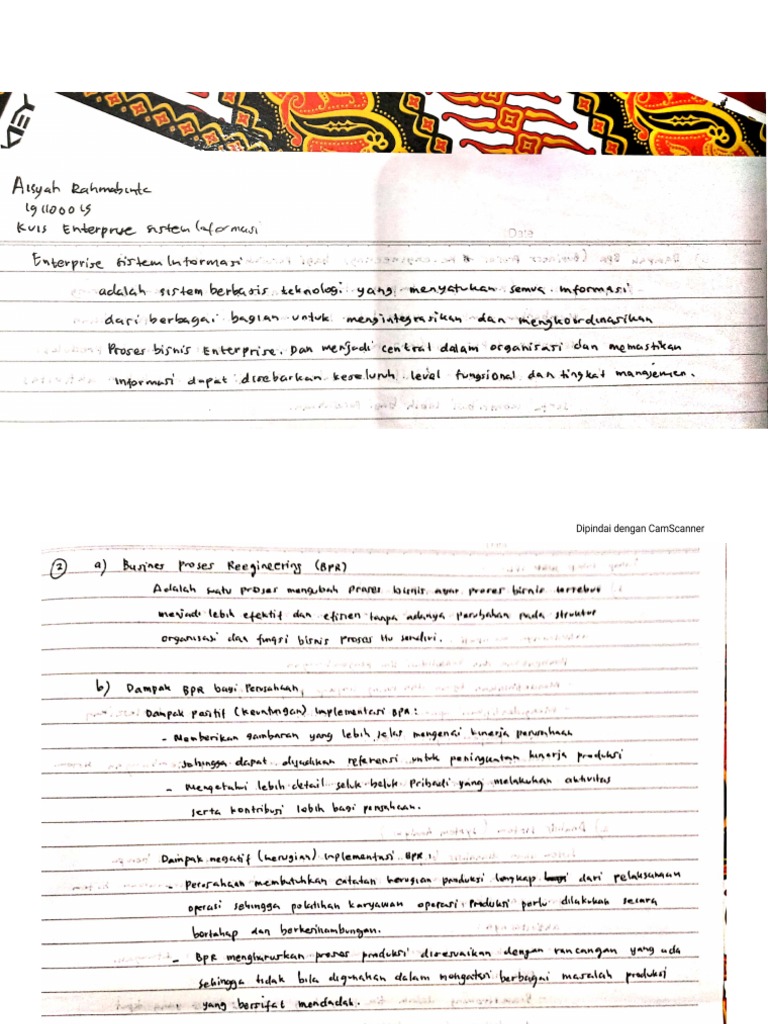 KEY
Aisyah Rahmabinta
19110015
Kuis Enterprise sistem Informasi
Enterprise sistem Informasi
adalah sistem berbasis teknologi yang menyatukan semua informasi
dari berbagai bagian untuk mengintegrasikan dan mengkoordinasikan
Proses bisnis Enterprise. Dan menjadi central dalam organisasi dan memastikan
Informasi dapat disebarkan keseluruh level fungsional dan tingkat manajemen.
Dipindai dengan CamScanner
2 a) Busines Proses Reegineering (BPR)
Adalah suatu proses mengubah proses bisnis agar proses bisnis tersebut
menjadi lebih efektif dan efisien tanpa adanya perubahan pada struktur
organisasi dan fungsi bisnis proses itu sendiri.
b) Dampak BPR bagi Perusahaan,
Dampak Positif (keuntungan) Implementasi BPR :
- Memberikan gambaran yang lebih jelas mengenai kinerja perusahaan
sehingga dapat dijadikan referensi untuk peningkatan kinerja produksi
- Mengetahui lebih detail seluk beluk Pribadi yang melakukan aktivitas
serta kontribusi lebih bagi perusahaan.
Dampak negatif (kerugian) Implementasi BPR :
- Perusahaan membutuhkan catatan kerugian produksi lengkap dari pelaksanaan
operasi sehingga pelatihan karyawan operasi produksi perlu dilakukan secara
bertahap dan berkesinambungan.
- BPR mengharuskan proses produksi disesuaikan dengan rancangan yang ada
sehingga tidak bila digunakan dalam mengatasi berbagai masalah produksi
yang bersifat mendadak.